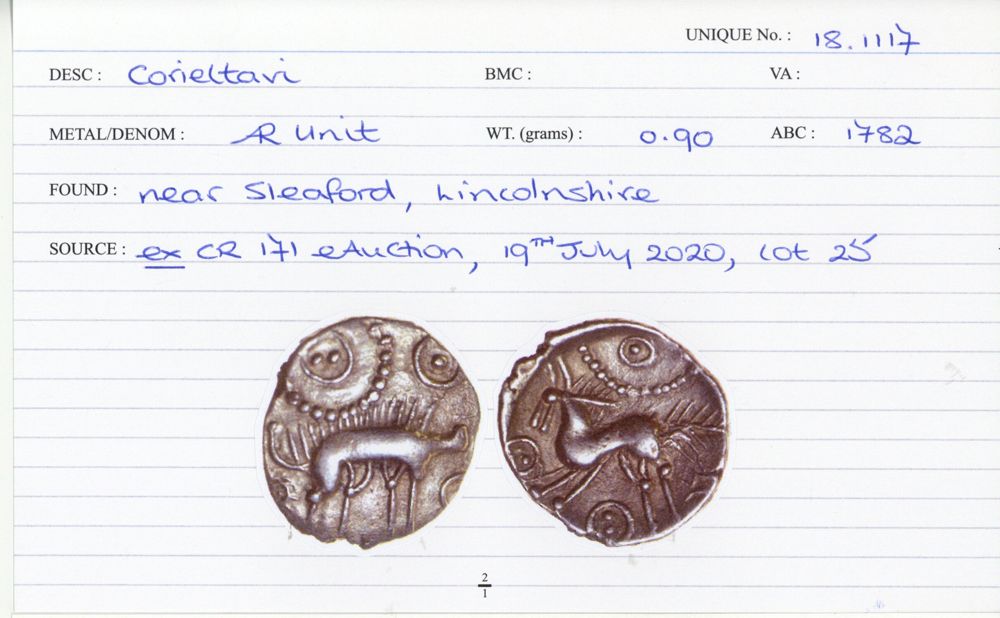 UNIQUE No. : 18.1117
DESC : Corieltavi BMC : VA :
METAL/DENOM : AR Unit WT. (grams) : 0.90 ABC : 1782
FOUND : near Sleaford, Lincolnshire
SOURCE : ex CR 171 eAuction, 19TH July 2020, lot 25
2
1